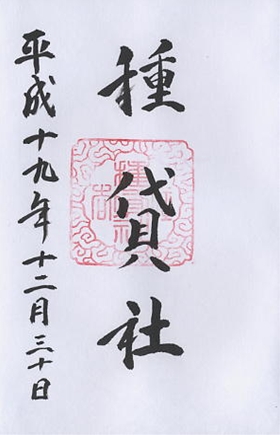 種貸社
平成十九年十二月三十日
種貸社